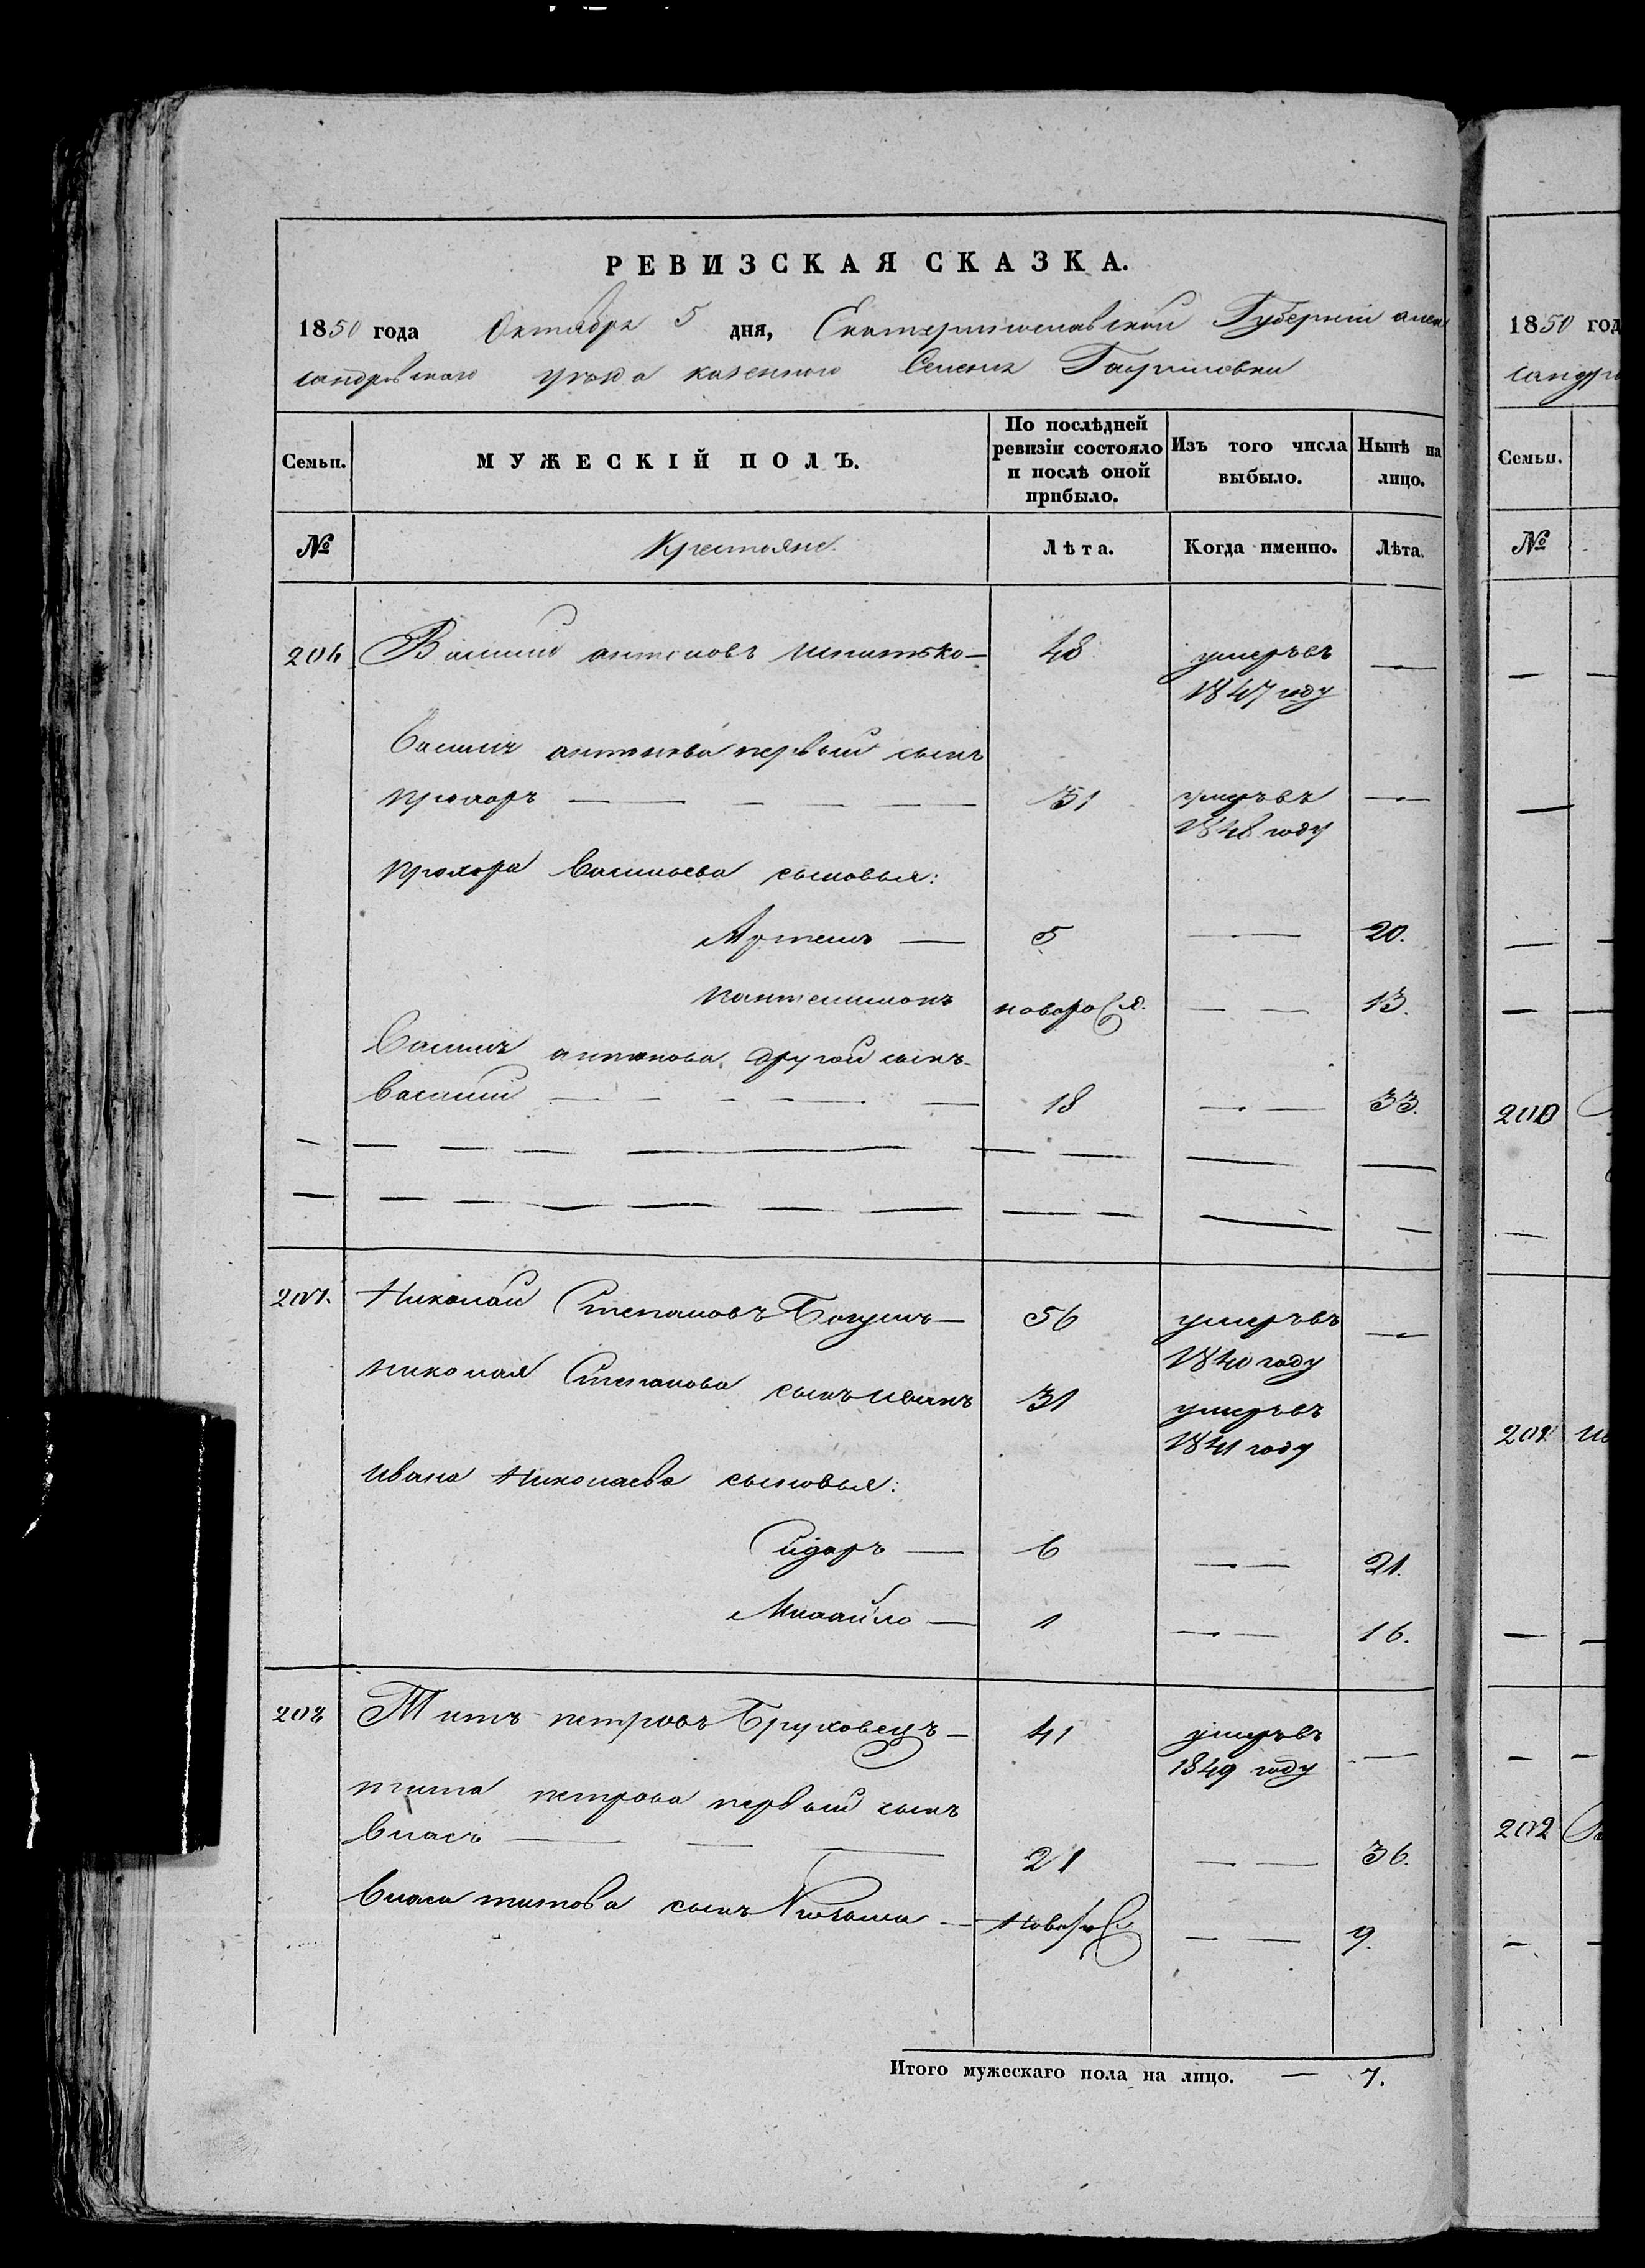 РЕВИЗСКАЯ СКАЗКА.
1850 года Октября 5 дня, Екатеринославской Губернии алек
сандровскаго уезда казенного Селения Гавриловки
Семьи. МУЖЕСКІЙ ПОЛЪ. По послѣдней ревизіи состояло и послѣ оной прибыло. Изъ того числа выбыло. Нынѣ на лицо.
№ Крестьяне. Лѣта. Когда именно. Лѣта.
206 Василий антоновъ 48 умеръ въ —
1847 году
Василия антонова первый сынъ
прохоръ — 31 умеръ въ —
1848 году
прохора Васильева сыновья:
Артемъ — 5 — 20.
пантелимонъ новорожд. — 13.
Василия антонова другой сынъ
василий — 18 — 33.
207. Николай Степановъ Богушъ — 56 умеръ въ —
1840 году
николая Степанова сынъ иванъ 31 умеръ въ
1841 году
ивана Николаева сыновья:
Сидоръ — 6 — 21.
Михайло — 1 — 16.
208 Титъ петровъ Бруховецъ — 41 умеръ въ —
1849 году
тита петрова первый сынъ
Власъ — 21 — 36.
Власа титова сынъ — 9.
Итого мужескаго пола на лицо. — 7.
1850 год
Семьи.
№
200
201
202